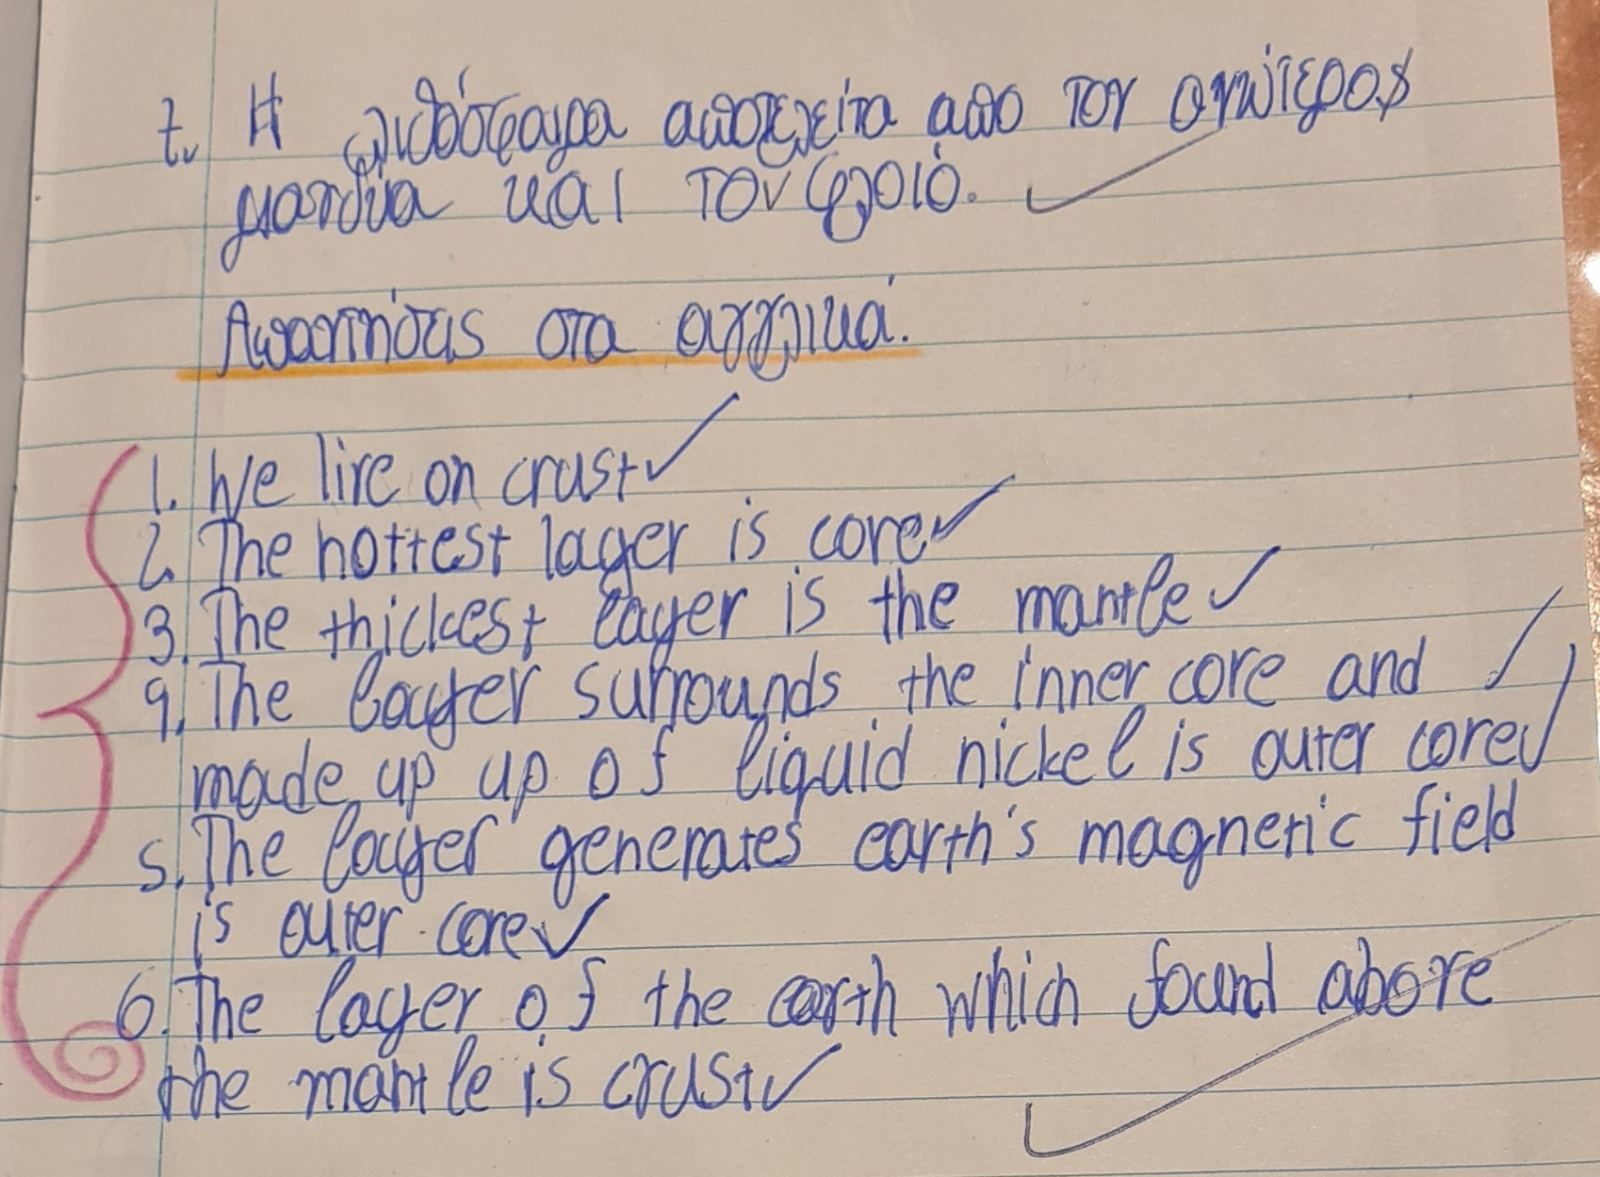 7. Η λιθόσφαιρα αποτελείτα απο τον ανώτερος
μανδύα και τον φλοιό.
Απαντήσεις στα αγγλικά.
1. We live on crust
2. The hottest layer is core
3. The thickest layer is the mantle
4. The layer surrounds the inner core and
made up up of liquid nickel is outer core
5. The layer generates earth's magnetic field
is outer core
6. The layer of the earth which found above
the mantle is crust